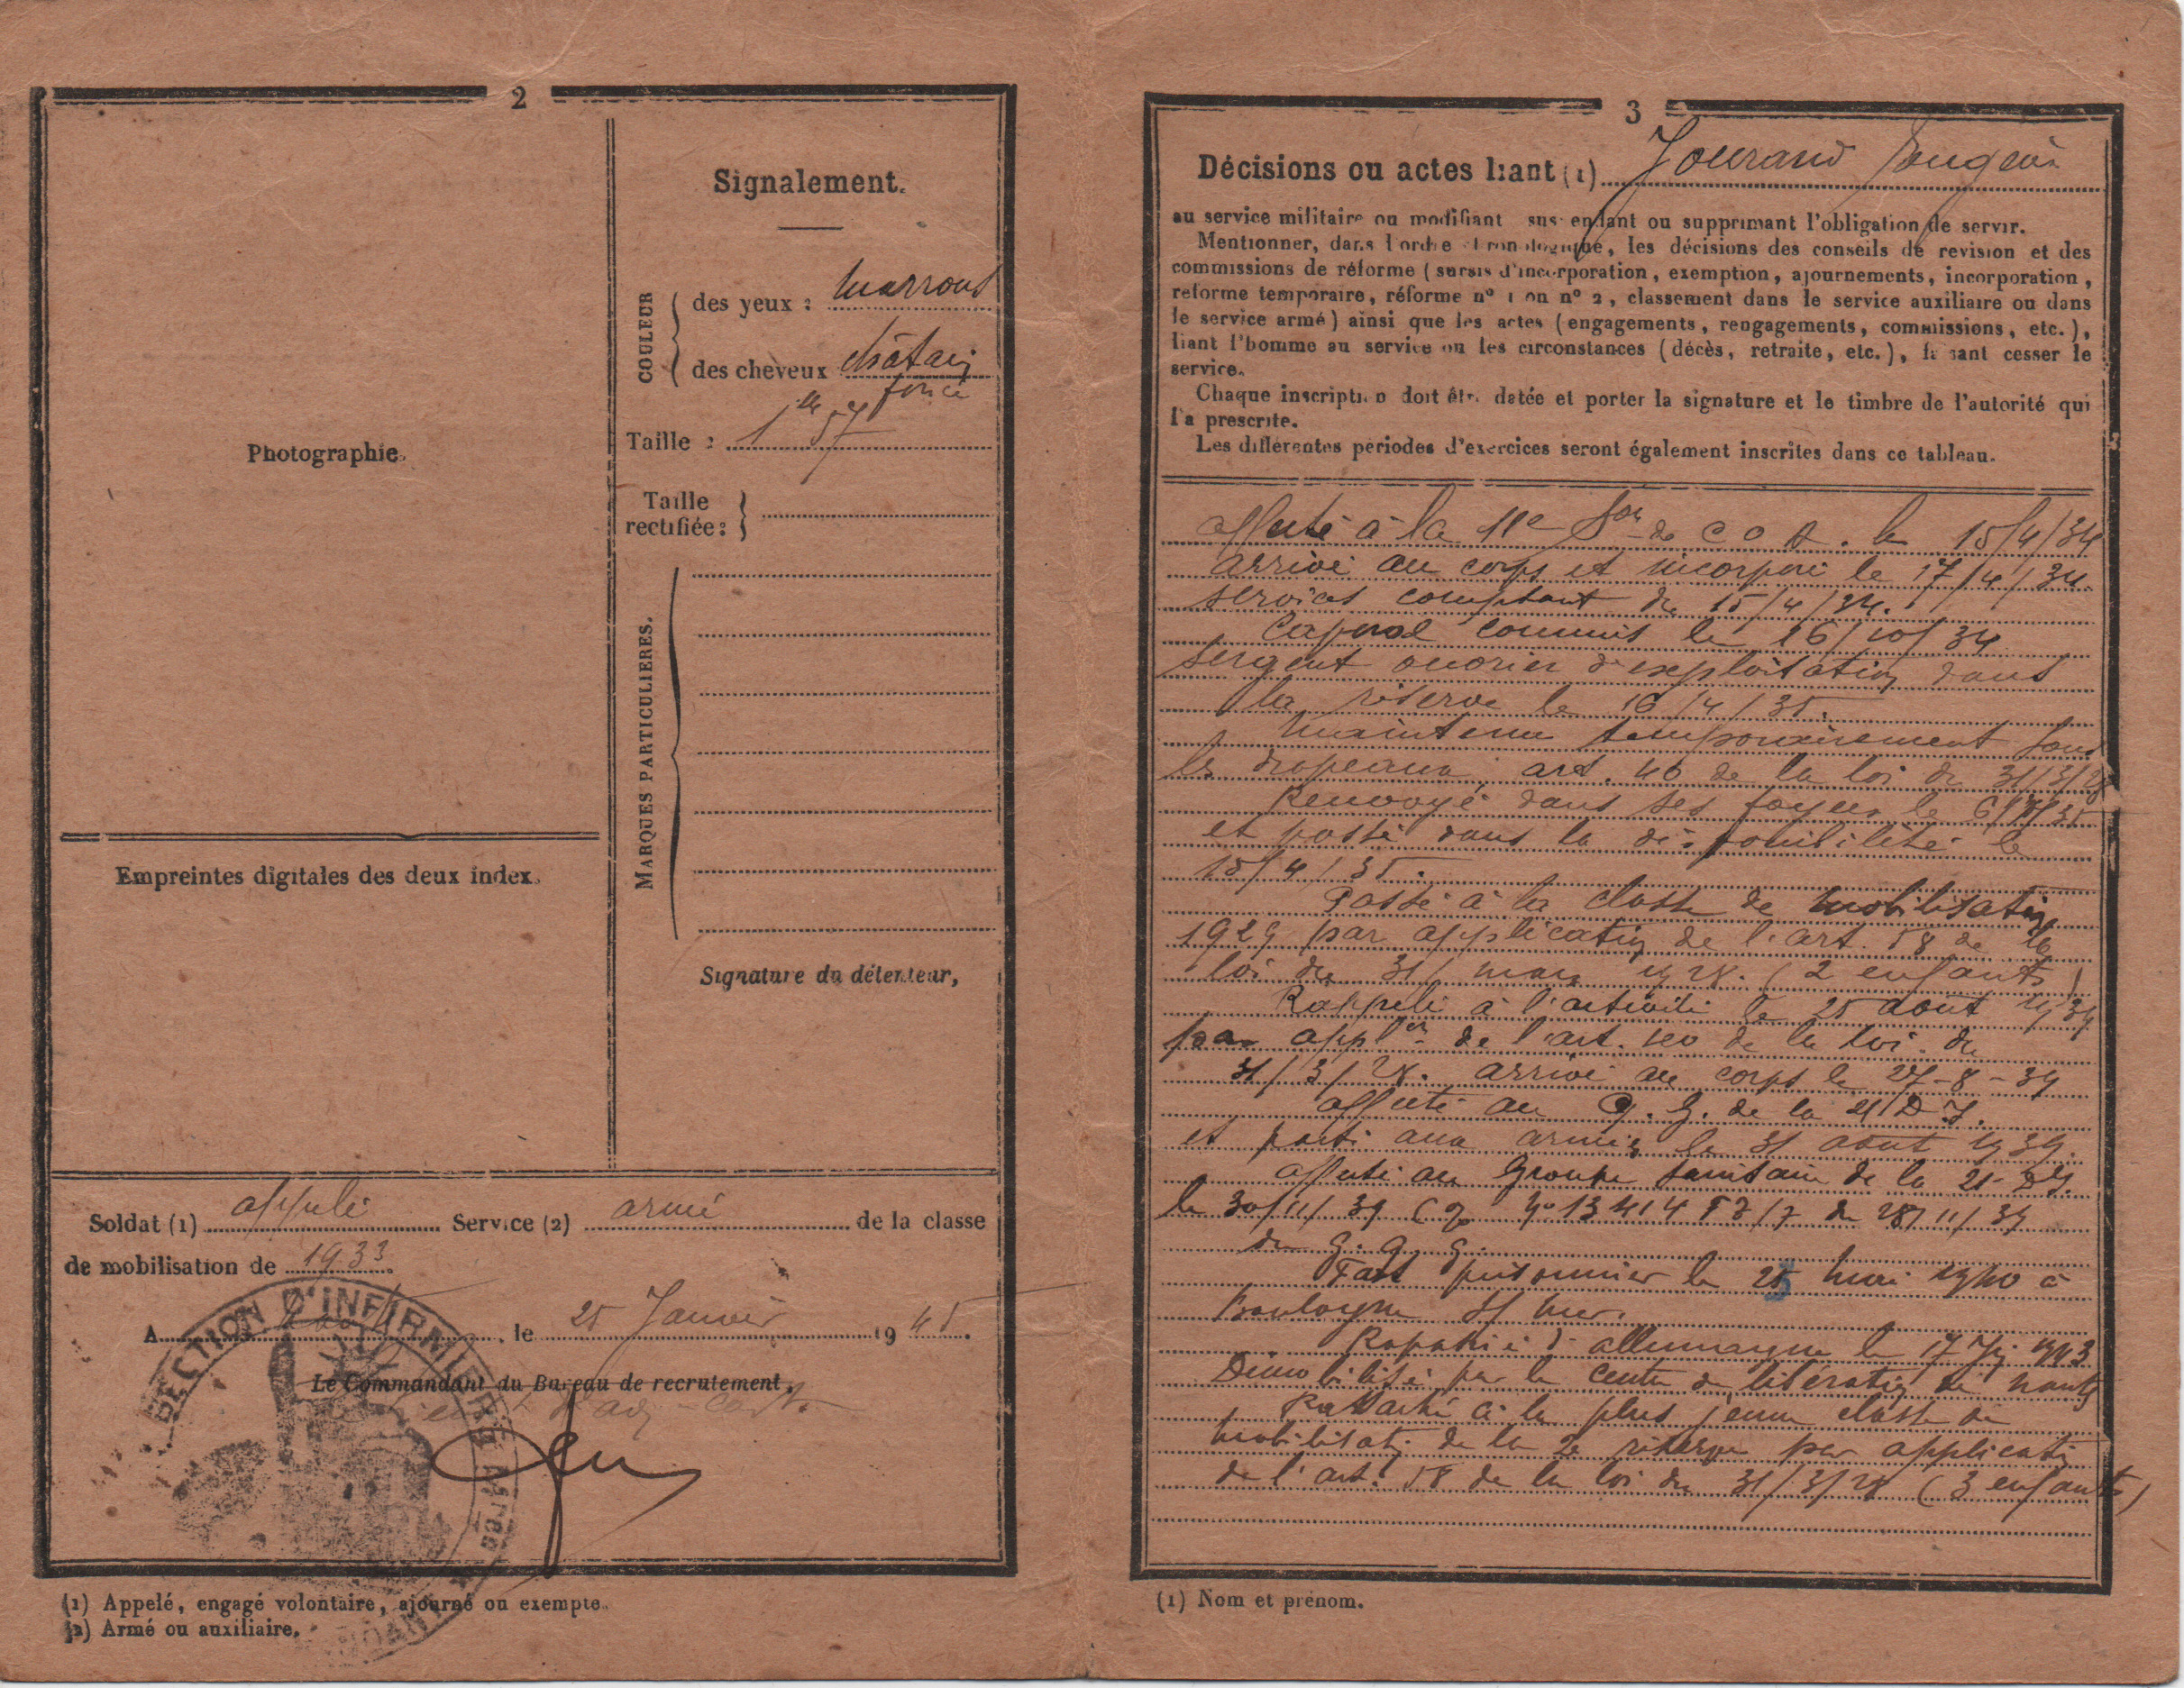 2
Photographie.
Empreintes digitales des deux index.
Signalement.
COULEUR
des yeux : marrons
des cheveux châtain
foncé
Taille : 1 m 57
Taille
rectifiée :
MARQUES PARTICULIERES.
Signature du détenteur,
Soldat (1) appelé Service (2) armé de la classe
de mobilisation de 1933.
A , le 25 Janvier 1945.
Le Commandant du Bureau de recrutement,
SECTION D'INFIRMIERS
(1) Appelé, engagé volontaire, ajourné ou exempté.
(2) Armé ou auxiliaire.
3
Décisions ou actes liant (1) Jourand
au service militaire ou modifiant suspendant ou supprimant l'obligation de servir.
Mentionner, dans l'ordre chronologique, les décisions des conseils de revision et des
commissions de réforme (sursis d'incorporation, exemption, ajournements, incorporation,
réforme temporaire, réforme nº 1 ou nº 2, classement dans le service auxiliaire ou dans
le service armé) ainsi que les actes (engagements, rengagements, commissions, etc.),
liant l'homme au service ou les circonstances (décès, retraite, etc.), faisant cesser le
service.
Chaque inscription doit être datée et porter la signature et le timbre de l'autorité qui
l'a prescrite.
Les différentes périodes d'exercices seront également inscrites dans ce tableau.
affecté à la 11e Son de C O A. le 15/4/34
arrivé au corps et incorporé le 17/4/34.
services comptant du 15/4/34.
Caporal commis le 16/10/34
sergent ouvrier d'exploitation dans
la réserve le 16/4/35.
Maintenu temporairement sous
les drapeaux, art. 40 de la loi du 31/3/28
Renvoyé dans ses foyers le 35
et passé dans la disponibilité le
15/4/35.
Passé à la classe de mobilisation
1929 par application de l'art. 58 de la
loi du 31 mars 1928. (2 enfants)
Rappelé à l'activité le 25 août 1939
par appl on de l'art. 40 de la loi du
31/3/28. arrivé au corps le 27-8-39
affecté au Q. G. de la 21 D I.
et parti aux armées le 31 août 1939.
affecté au Groupe sanitaire de la 21e DI.
le 30/11/39 ( nº 13414 du 28/11/39
du G. Q. G.
Fait prisonnier le 25 mai 1940 à
Boulogne s/ mer.
Rapatrié d'allemagne le 17 1943
Démobilisé par le Centre de libération de Nantes
Rattaché à la plus jeune classe de
mobilisati de la 2e réserve par applicati
de l'art. 58 de la loi du 31/3/28 (3 enfants)
(1) Nom et prénom.